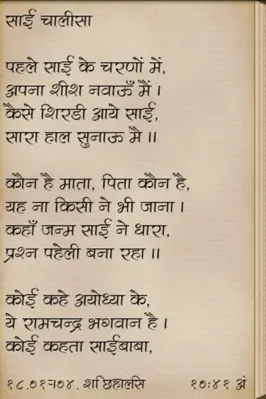 साई चालीसा
पहले साई के चरणों में,
अपना शीश नवाऊँ मैं।
कैसे शिरडी आये साई,
सारा हाल सुनाऊ मै॥
कौन है माता, पिता कौन है,
यह ना किसी ने भी जाना।
कहाँ जन्म साई ने धारा,
प्रश्न पहेली बना रहा॥
कोई कहे अयोध्या के,
ये रामचन्द्र भगवान है।
कोई कहता साईबाबा,
१०:४१